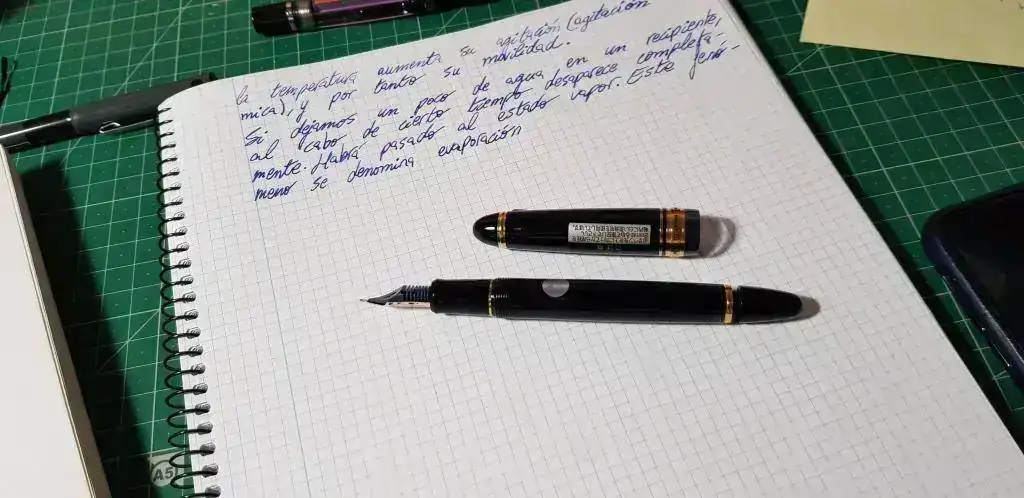 la temperatura aumenta su agitación (agitación
mica), y por tanto su movilidad.
Si dejamos un poco de agua en un recipiente,
al cabo de cierto tiempo desaparece completa-
mente. Habrá pasado al estado vapor. Este fenó-
meno se denomina evaporación
A5